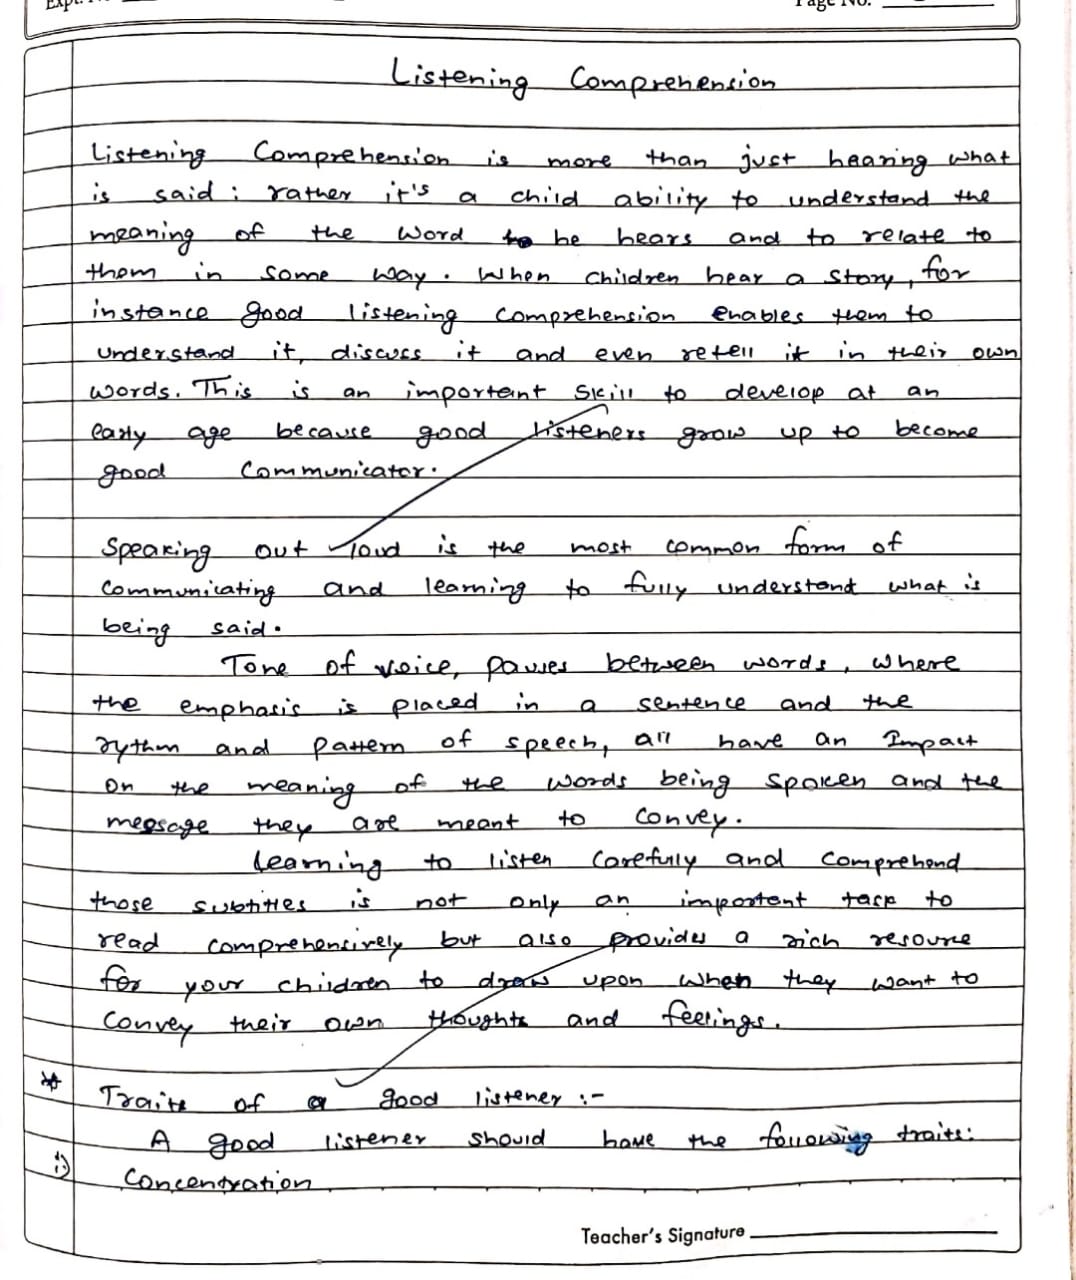 Page No.
Listening Comprehension
Listening Comprehension is more than just hearing what
is said : rather it's a child ability to understand the
meaning of the word he hears and to relate to
them in some way. When children hear a story, for
instance good listening comprehension enables them to
understand it, discuss it and even retell it in their own
words. This is an important skill to develop at an
early age because good listeners grow up to become
good Communicator.
Speaking out loud is the most common form of
communicating and learning to fully understand what is
being said.
Tone of voice, pauses between words, where
the emphasis is placed in a sentence and the
rythm and pattern of speech, all have an Impact
on the meaning of the words being spoken and the
message they are meant to convey.
Learning to listen carefully and comprehend
those subtities is not only an important task to
read comprehensively but also provides a rich resource
for your children to draw upon when they want to
convey their own thoughts and feelings.
* Traits of a good listener :-
A good listener should have the following traits:
Concentration
Teacher's Signature